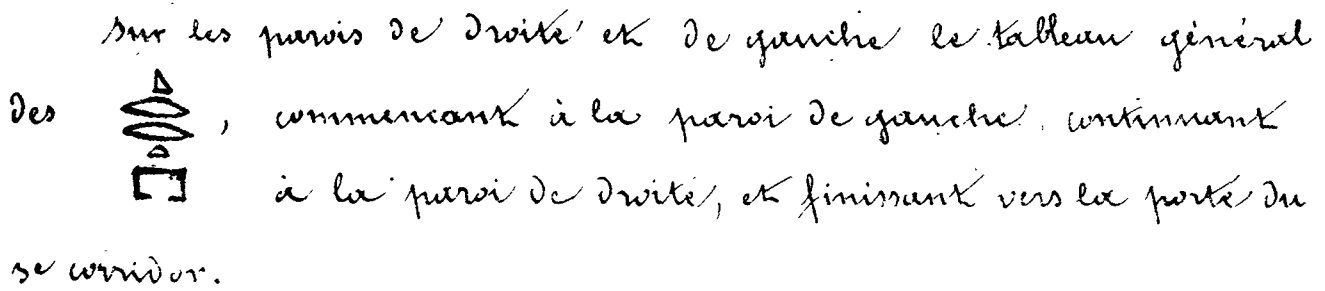 sur les parois de droite et de gauche le tableau général
des 𓈎𓂋𓂋𓏏𓉐, commencant à la paroi de gauche, continuant
à la paroi de droite, et finissant vers la porte du
3e corridor.